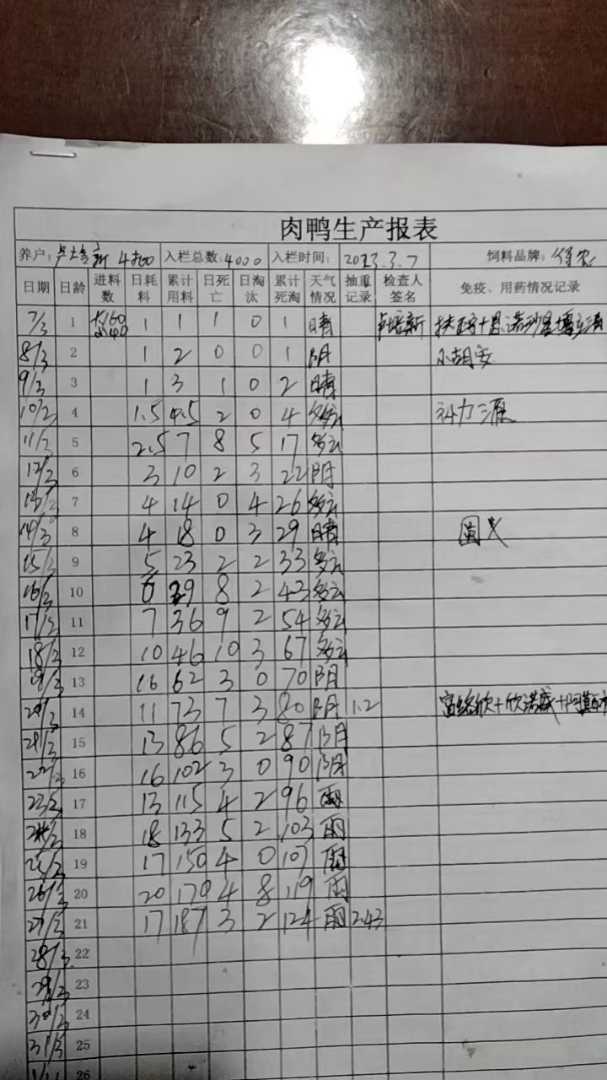 肉鸭生产报表
养户: 新 4800 入栏总数:4000 入栏时间: 2023.3.7 饲料品牌:
日期 日龄 进料数 日耗料 累计用料 日死亡 日淘汰 累计死淘 天气情况 抽重记录 检查人签名 免疫、用药情况记录
7/3 1 大160 小40 1 1 1 0 1 晴
8/3 2 1 2 0 0 1 阴
9/3 3 1 3 1 0 2 晴
10/3 4 1.5 4.5 2 0 4 多云
11/3 5 2.5 7 8 5 17 多云
12/3 6 3 10 2 3 22 阴
13/3 7 4 14 0 4 26 多云
14/3 8 4 18 0 3 29 晴
15/3 9 5 23 2 2 33 多云
16/3 10 6 29 8 2 43 多云
17/3 11 7 36 9 2 54 多云
18/3 12 10 46 10 3 67 多云
19/3 13 16 62 3 0 70 阴
20/3 14 11 73 7 3 80 阴 1.2
21/3 15 13 86 5 2 87 阴
22/3 16 16 102 3 0 90 阴
23/3 17 13 115 4 2 96 雨
24/3 18 18 133 5 2 103 雨
25/3 19 17 150 4 0 107 雨
26/3 20 20 170 4 8 119 雨
27/3 21 17 187 3 2 124 雨 2.43
28/3 22
29/3 23
30/3 24
31/3 25
26